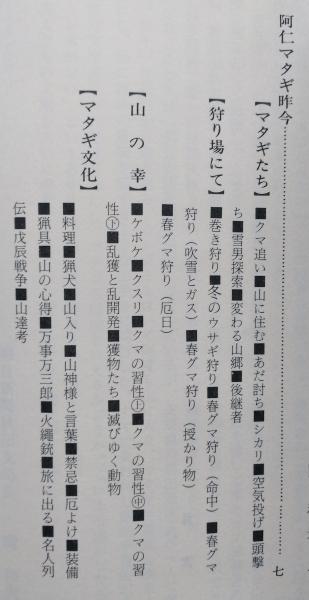 阿仁マタギ昨今………………………………………七
【マタギたち】■クマ追い■山に住む■あだ討ち■シカリ■空気投げ■頭撃
ち■雪男探索■変わる山郷■後継者
【狩り場にて】■巻き狩り■冬のウサギ狩り■春グマ狩り（命中）■春グマ
狩り（吹雪とガス）■春グマ狩り（授かり物）
■春グマ狩り（厄日）
【山の幸】■ケボケ■クスリ■クマの習性㊤■クマの習性㊥■クマの習
性㊦■乱獲と乱開発■獲物たち■滅びゆく動物
【マタギ文化】
■料理■猟犬■山入り■山神様と言葉■禁忌■厄よけ■装備
■猟具■山の心得■万事万三郎■火縄銃■旅に出る■名人列
伝■戊辰戦争■山達考